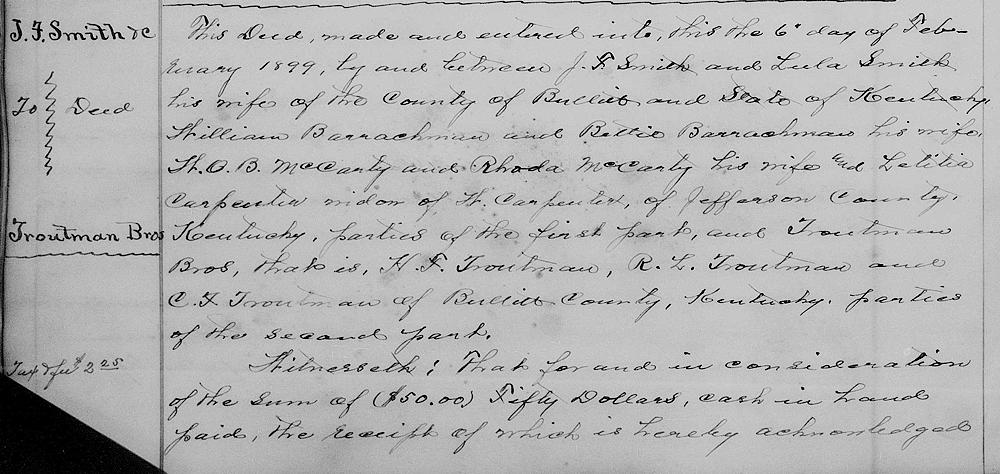 J. F. Smith &c
To Deed
Troutman Bros
Tax & fee $2 25
This Deed, made and entered into, this the 6" day of Feb-
ruary 1899, by and between J. F Smith and Lula Smith
his wife of the County of Bullitt and State of Kentucky,
William Barrachman and Bettie Barrachman his wife,
W. O. B. McCarty and Rhoda McCarty his wife and Letitia
Carpenter widow of W. Carpenter, of Jefferson County,
Kentucky, parties of the first part, and Troutman
Bros, that is, H. F. Troutman, R. L. Troutman and
C. F. Troutman of Bullitt County, Kentucky. parties
of the second part.
Witnesseth; That for and in consideration
of the sum of ($50.00) Fifty Dollars, cash in hand
paid, the receipt of which is hereby acknowledged